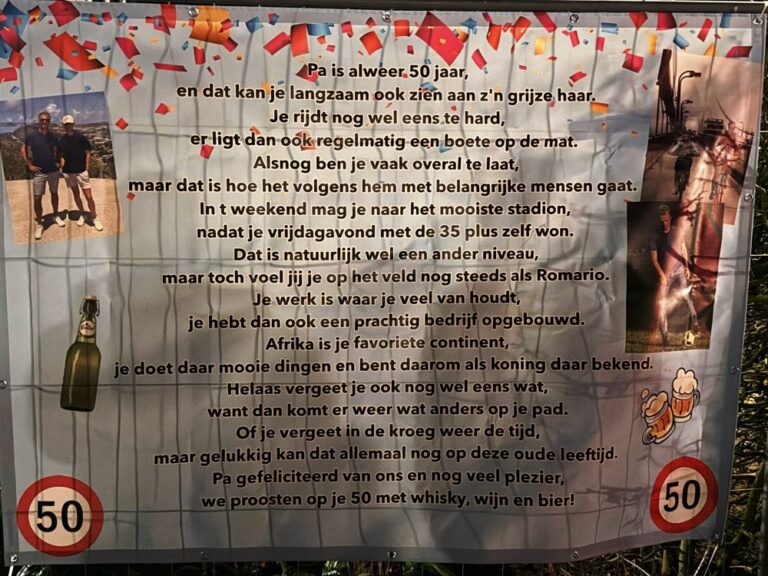 Pa is alweer 50 jaar,
en dat kan je langzaam ook zien aan z'n grijze haar.
Je rijdt nog wel eens te hard,
er ligt dan ook regelmatig een boete op de mat.
Alsnog ben je vaak overal te laat,
maar dat is hoe het volgens hem met belangrijke mensen gaat.
In t weekend mag je naar het mooiste stadion,
nadat je vrijdagavond met de 35 plus zelf won.
Dat is natuurlijk wel een ander niveau,
maar toch voel jij je op het veld nog steeds als Romario.
Je werk is waar je veel van houdt,
je hebt dan ook een prachtig bedrijf opgebouwd.
Afrika is je favoriete continent,
je doet daar mooie dingen en bent daarom als koning daar bekend.
Helaas vergeet je ook nog wel eens wat,
want dan komt er weer wat anders op je pad.
Of je vergeet in de kroeg weer de tijd,
maar gelukkig kan dat allemaal nog op deze oude leeftijd.
Pa gefeliciteerd van ons en nog veel plezier,
we proosten op je 50 met whisky, wijn en bier!
50
50